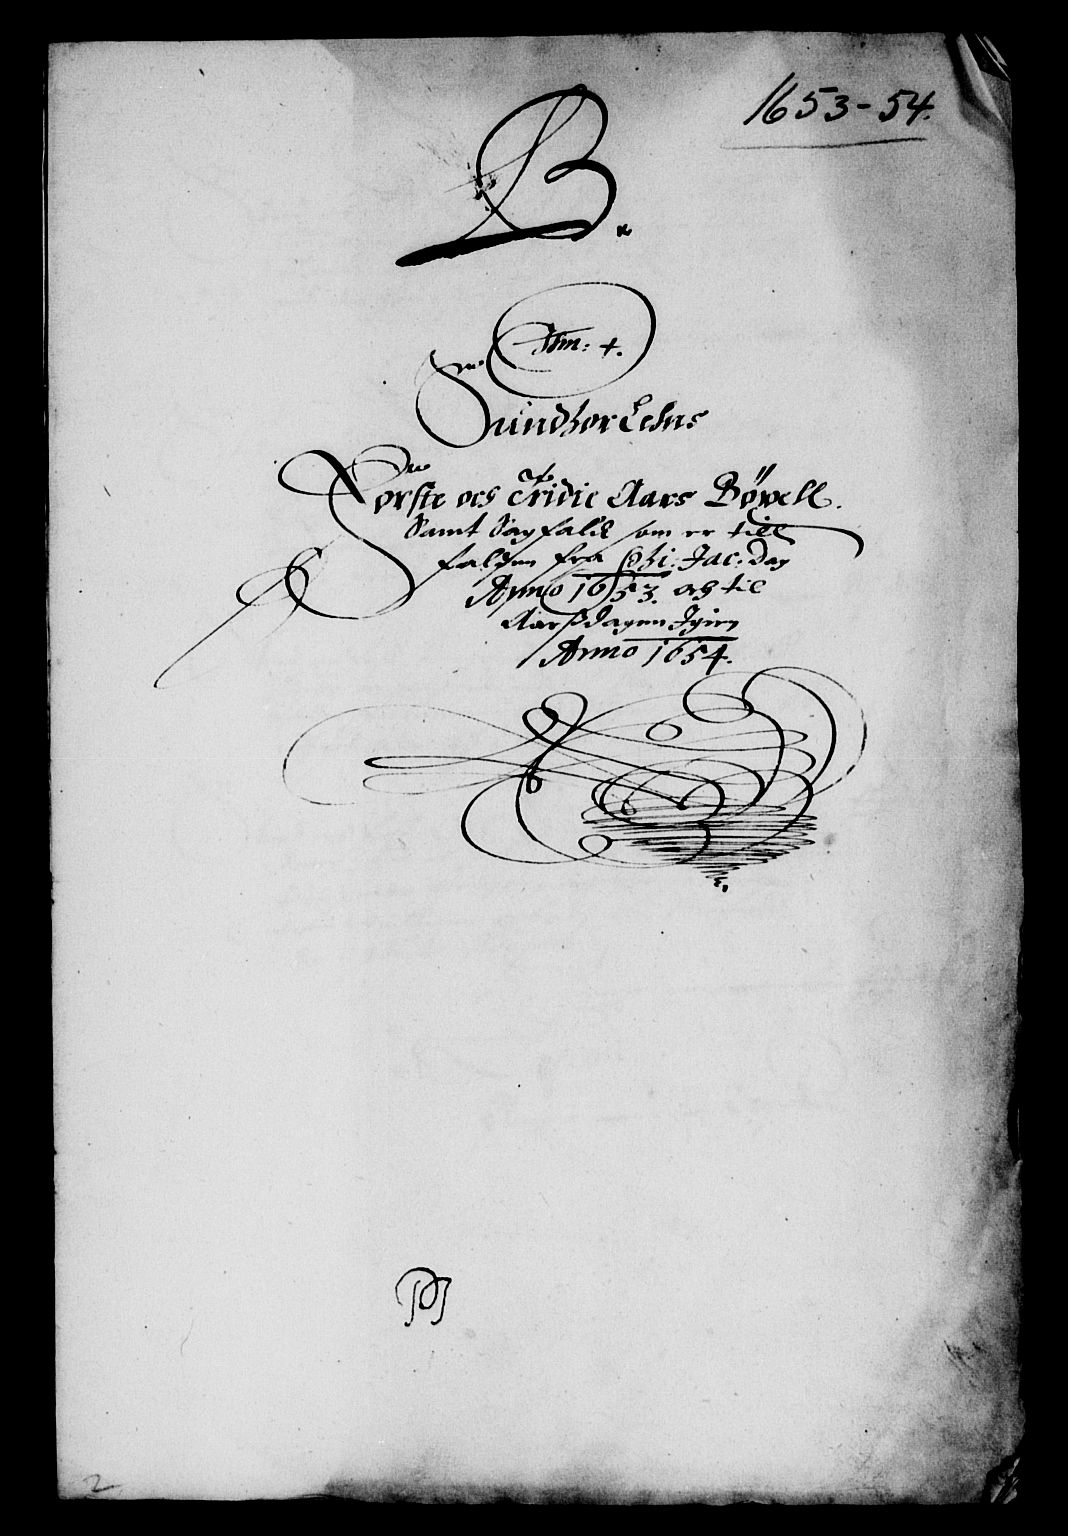 1653-54.
B
Nm: 4.
Sundhor Lehns
Første och Tridie Aars Bøxell.
Samt Sagfald som er till
falden fra Phi. Jac: Dag
Anno 1653. och til
Aarsdagen Igien
Anno 1654.
2